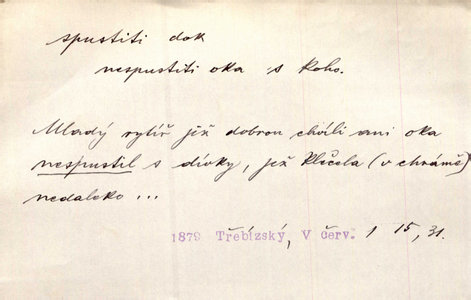 spustiti dok
nespustiti oka s koho.
Mladý rytíř již dobrou chvíli ani oka
nespustil s dívky, jež klečela (v chrámě)
nedaleko ...
1879 Třebízský, V červ. 1 15, 31.